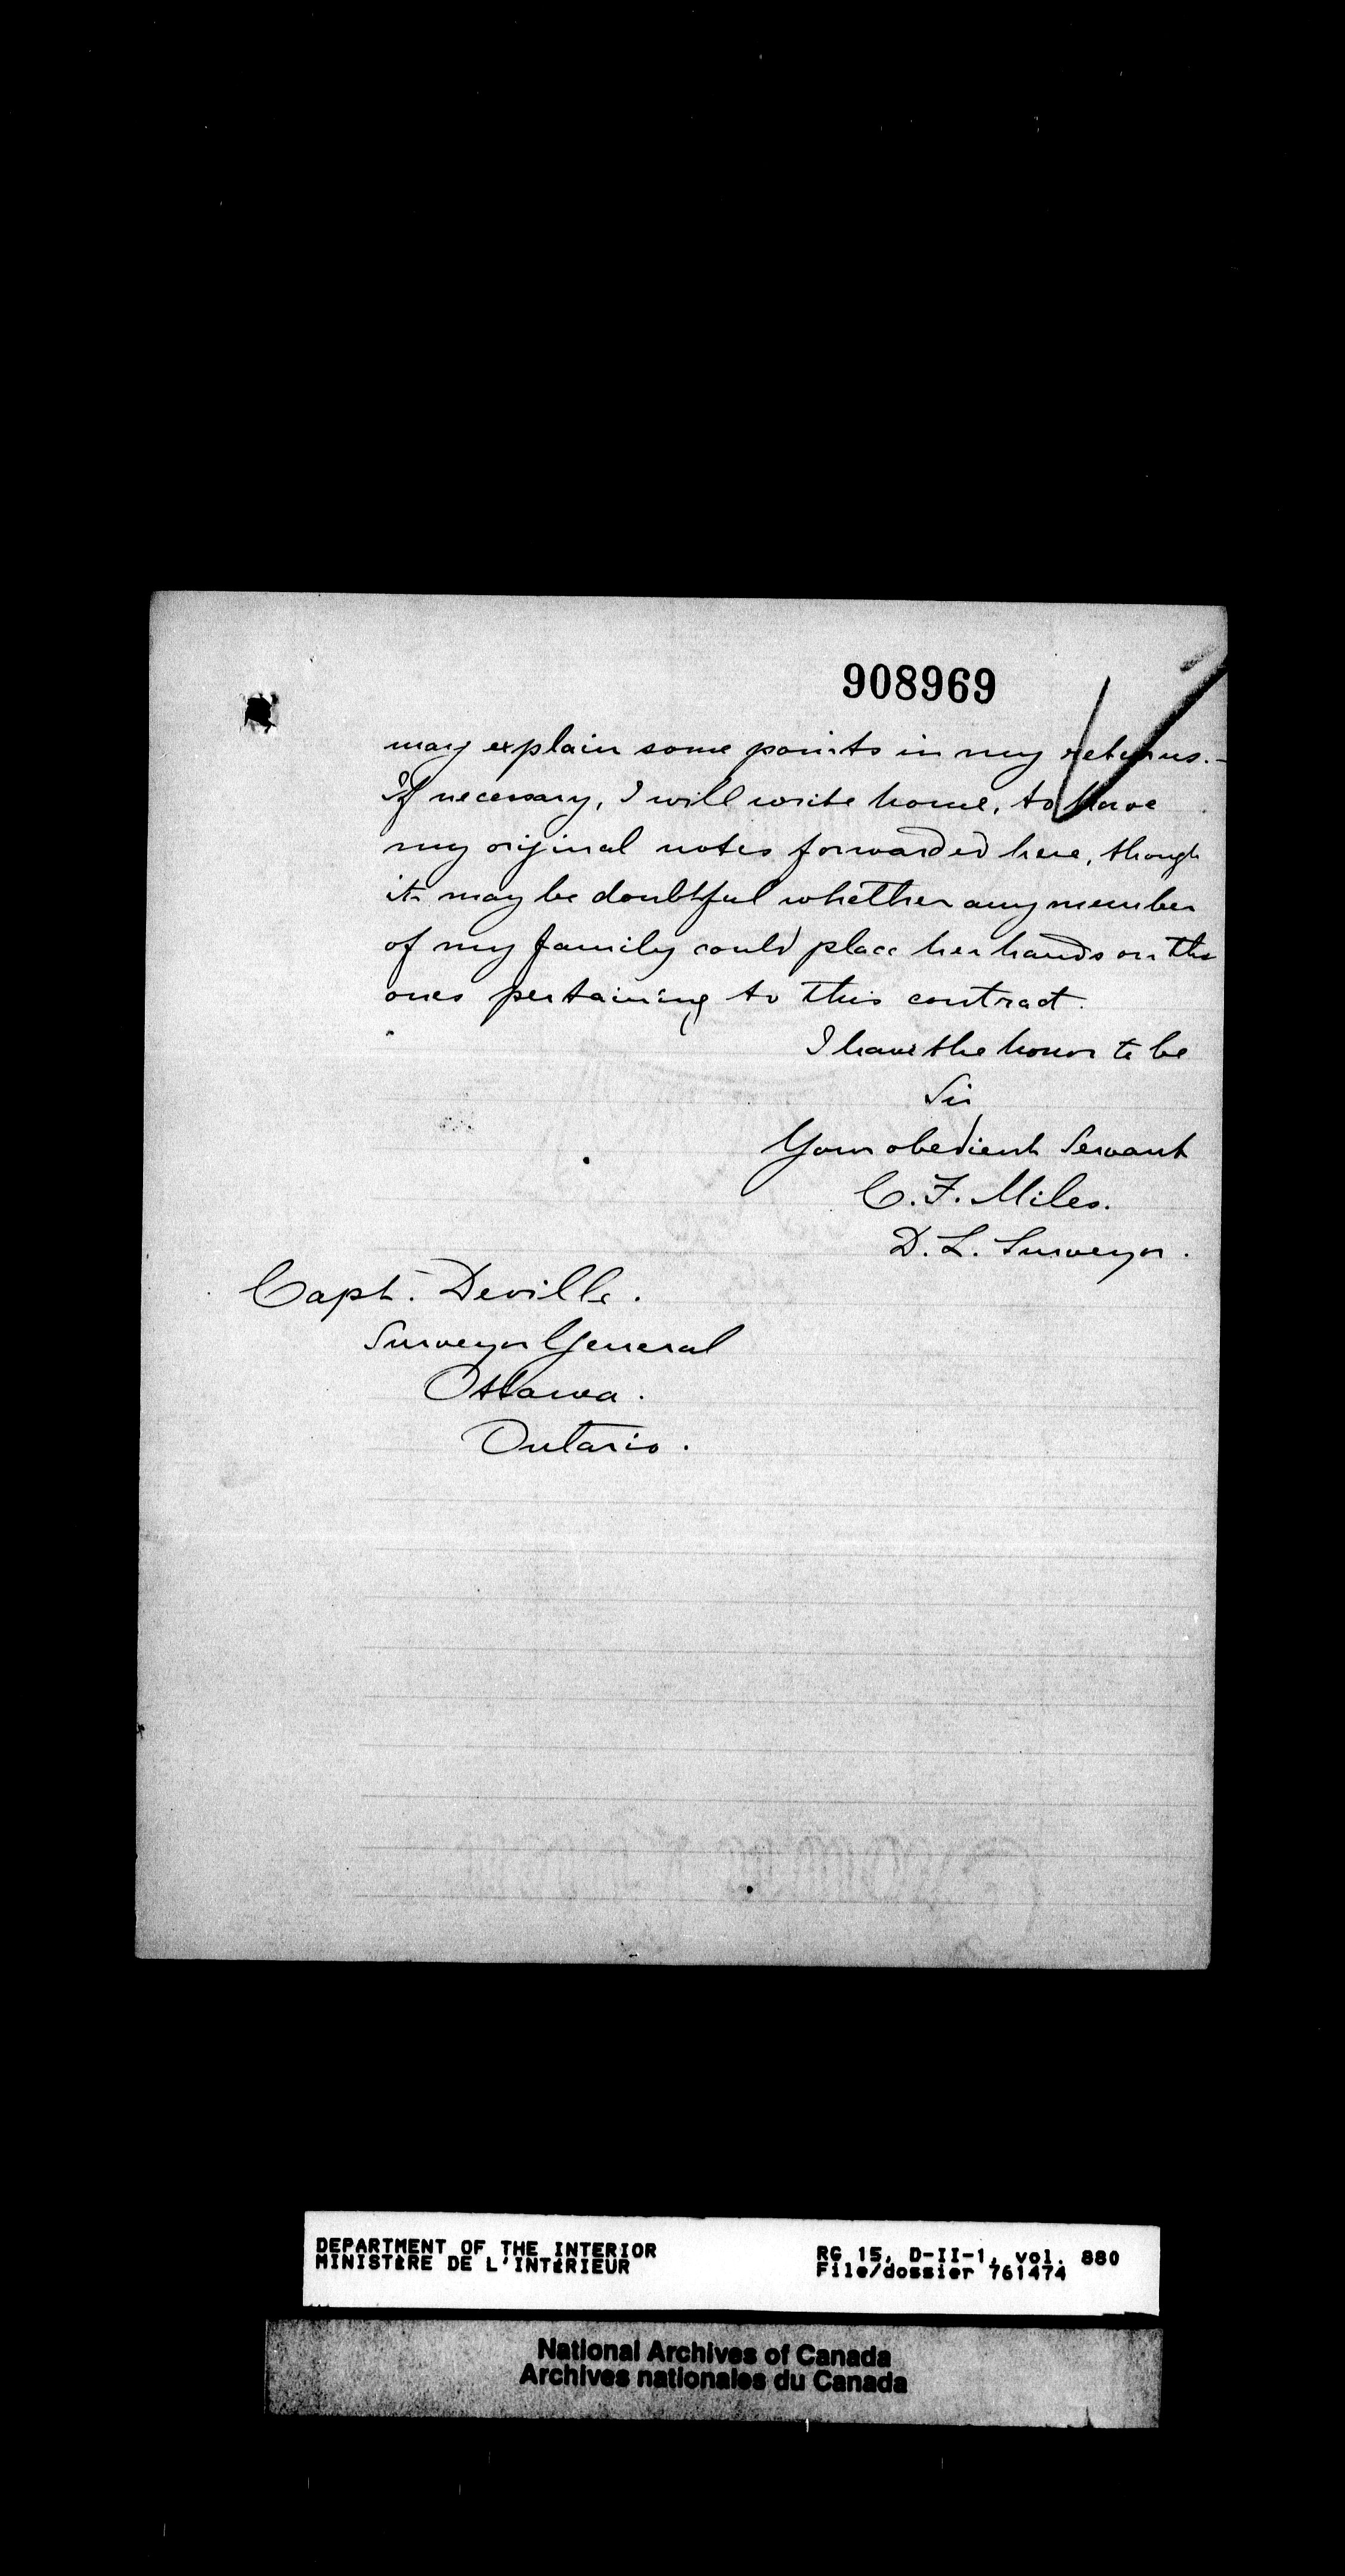 908969
may explain some points in my returns.–
If necessary, I will write home, to have
my original notes forwarded here, though
it may be doubtful whether any member
of my family could place her hands on the
ones pertaining to this contract.
I have the honor to be
Sir
Your obedient Servant
C. F. Miles.
D. L. Surveyor.
Capt. Deville.
Surveyor General
Ottawa.
Ontario.
DEPARTMENT OF THE INTERIOR
MINISTÈRE DE L'INTÉRIEUR
RG 15, D-II-1, vol. 880
File/dossier 761474
National Archives of Canada
Archives nationales du Canada